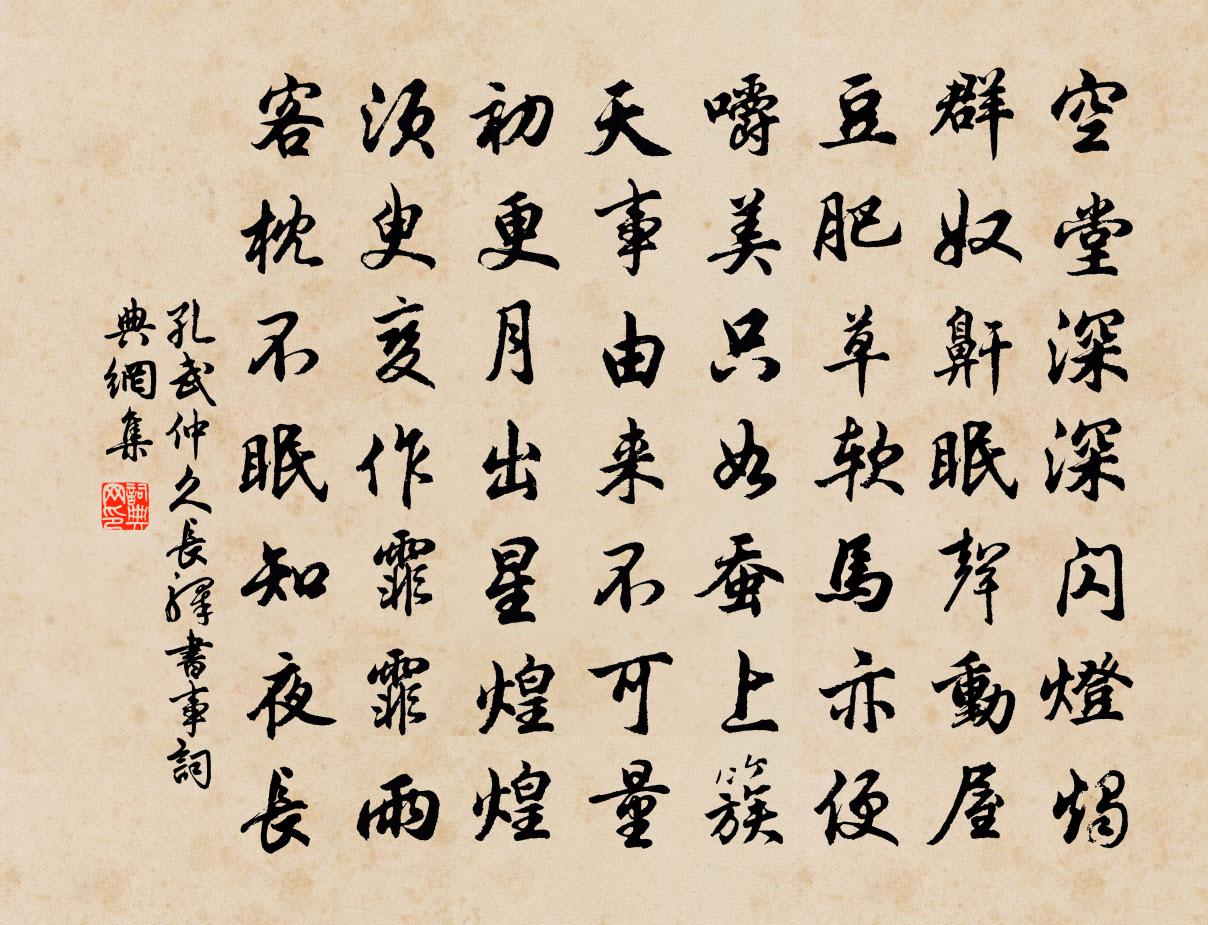 空堂深深閃燈燭
群奴鼾眠聲動屋
豆肥草軟馬亦便
嚼美只如蚕上簇
天事由来不可量
初更月出星煌煌
須臾变作霏霏雨
客枕不眠知夜長
孔武仲久長驛書事詞
典網集
詞典网印